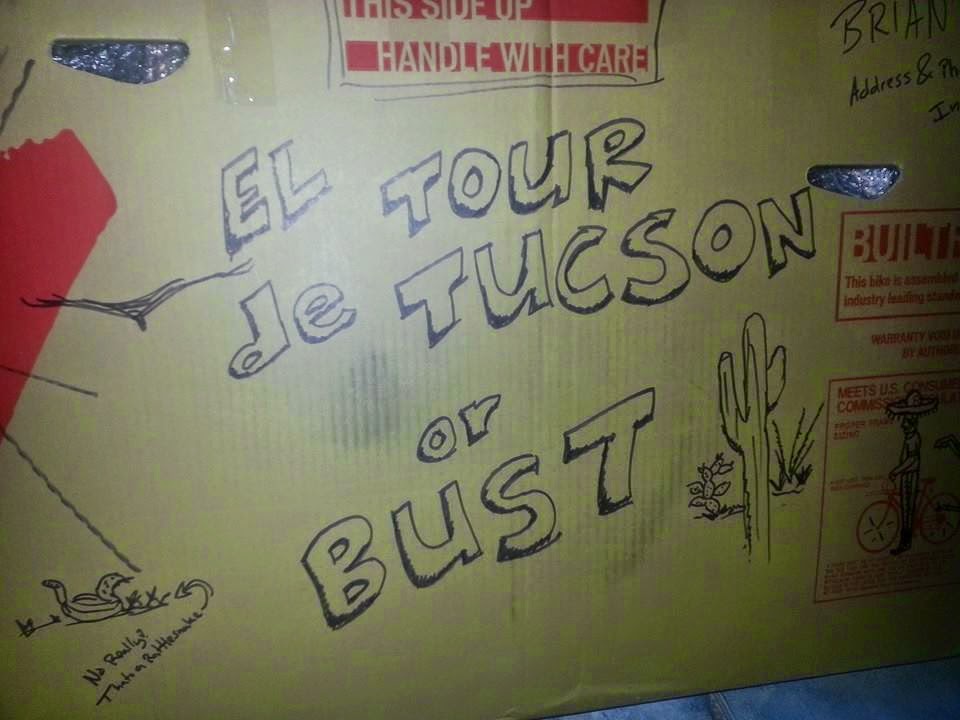 THIS SIDE UP
HANDLE WITH CARE
BRIAN
Address & Ph
In
EL TOUR
de TUCSON
or
BUST
BUILT
This bike is assembled
industry leading stand
WARRANTY VOID
BY AUTHOR
MEETS U.S. CONSUME
COMMISS
PROPER FRAME
SIZING
No Really?
That's a Rattlesnake